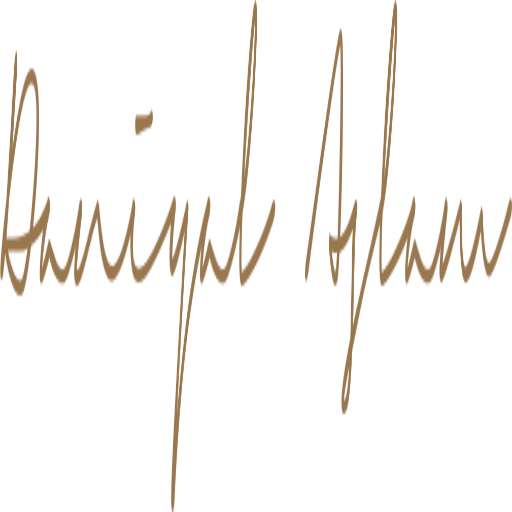 Daniyal Aslam